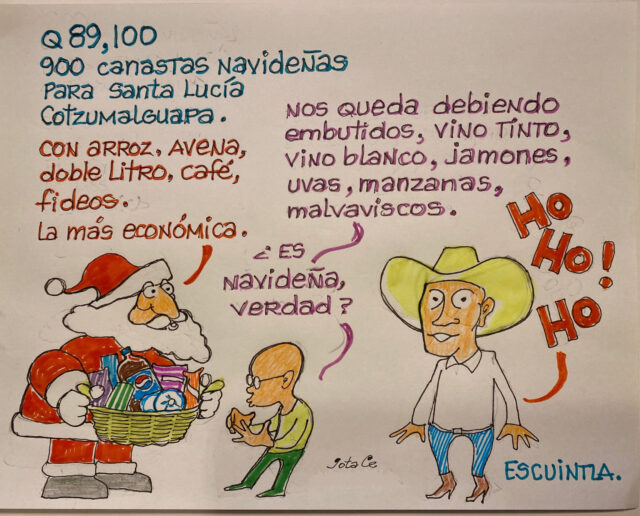 Q 89,100
900 canastas navideñas
para Santa Lucía
Cotzumalguapa.
con arroz, avena,
doble litro, café,
fideos.
La más económica.
Nos queda debiendo
embutidos, vino tinto,
vino blanco, jamones,
uvas, manzanas,
malvaviscos.
¿Es
navideña,
verdad?
Ho
Ho!
Ho
JotaCe
ESCUINTLA.